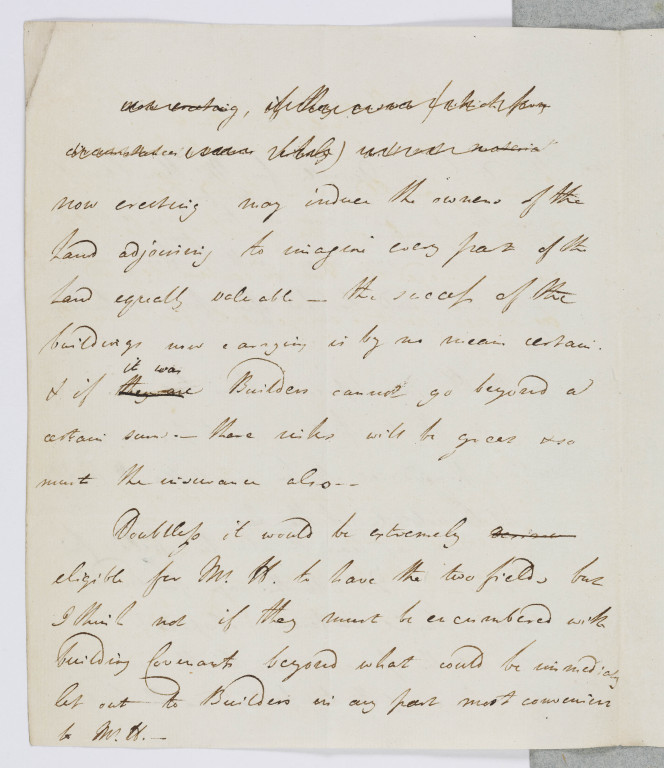 now erecting, if they were (which from
circumstances seems likely)
now erecting may induce the owners of the
Land adjoining to imagine every part of the
Land equally valuable — the success of the
buildings now carrying is by no means certain.
& if they are it was Builders cannot go beyond a
certain sum — there risks will be great & so
must the insurance also —
Doubtless it would be extremely
eligible for Mr. H. to have the two fields but
I think not if they must be encumbered with
building Covenants beyond what could be immediately
let out to Builders in any part most convenient
to Mr. H. —